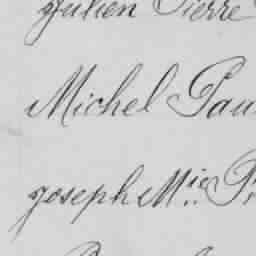 Julien Pierre
Michel Pau
Joseph M.ie P